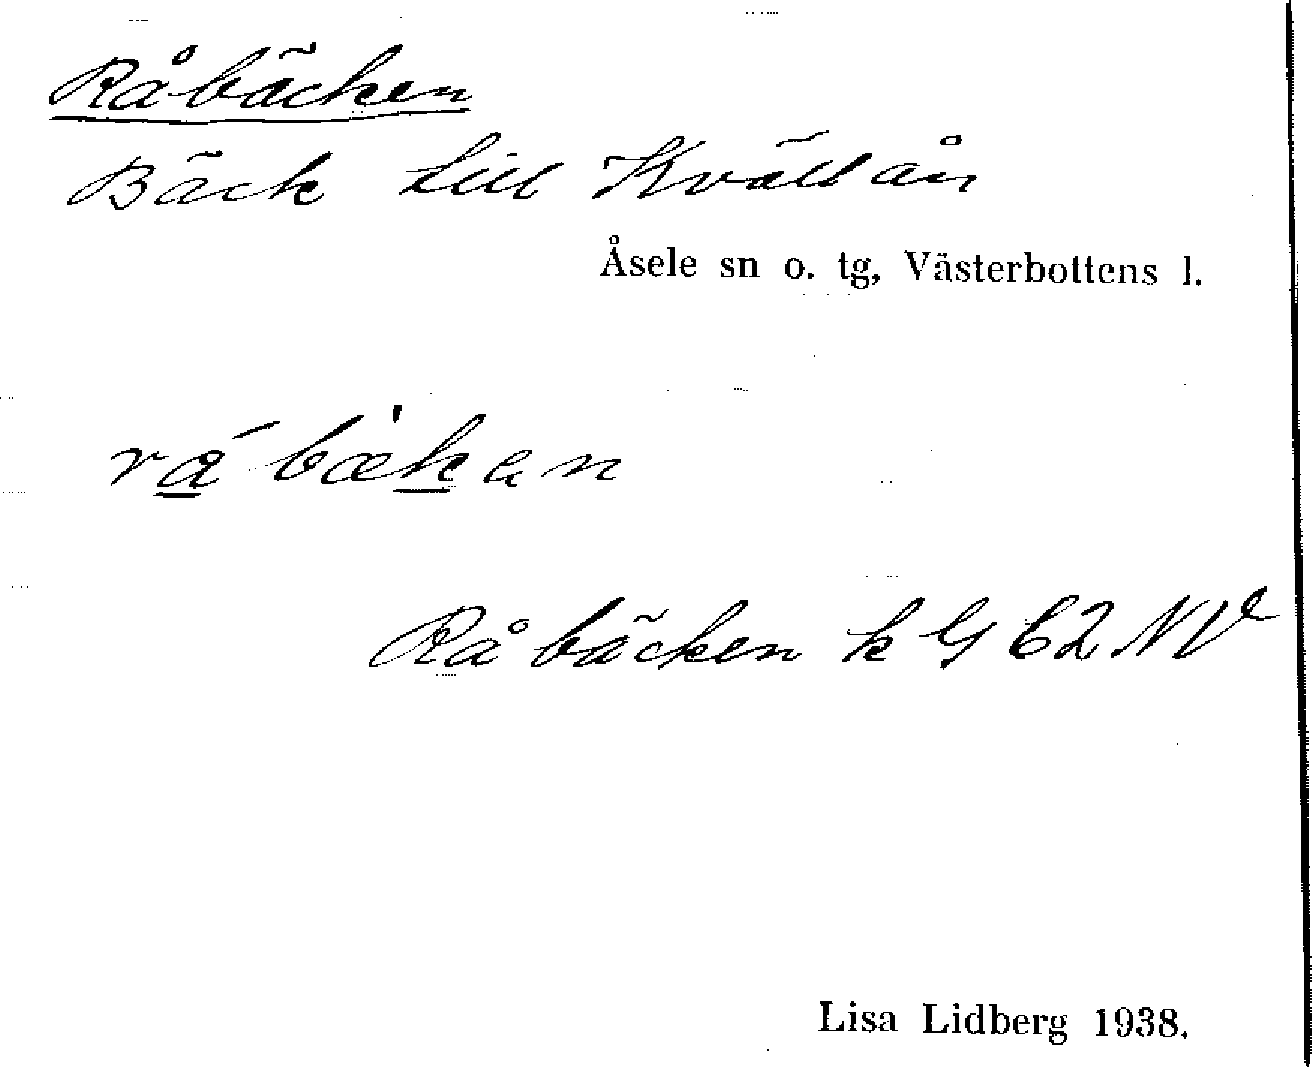 Råbäcken
Bäck till Kvällån
Åsele sn o. tg, Västerbottens l.
rá bæ̀ken
Råbäcken k G 62 NV
Lisa Lidberg 1938.